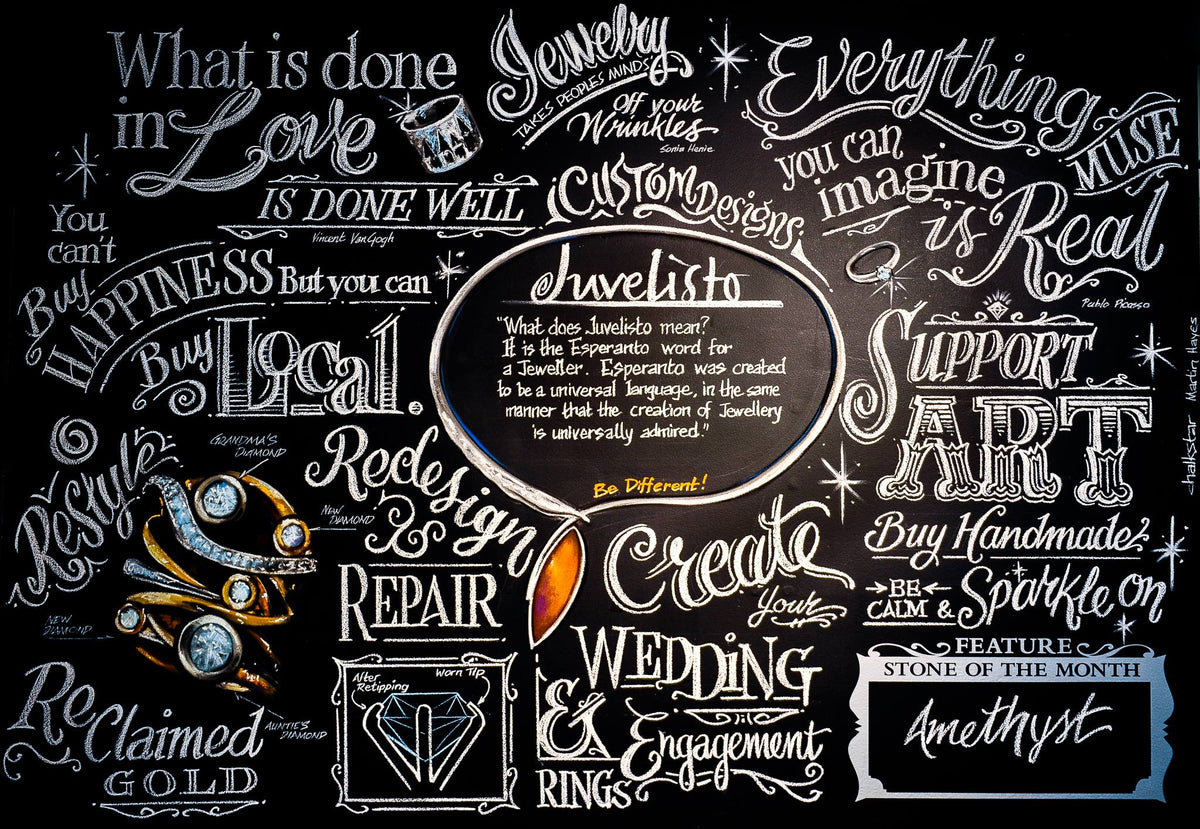 What is done
in Love
IS DONE WELL
Vincent VanGogh
Jewelry
TAKES PEOPLES MINDS
Off your
Wrinkles
Sonia Henie
Everything
you can
imagine
is Real
Pablo Picasso
MUSE
CUSTOM Designs
You
can't
Buy
HAPPINESS But you can
Buy Local.
Juvelisto
"What does Juvelisto mean?
It is the Esperanto word for
a Jeweller. Esperanto was created
to be a universal language, in the same
manner that the creation of Jewellery
is universally admired."
Be Different!
SUPPORT
ART
Buy Handmade
BE
CALM & Sparkle on
chalkstar Martin Hayes
Restyle
GRANDMA'S
DIAMOND
NEW
DIAMOND
NEW
DIAMOND
AUNTIE'S
DIAMOND
ReClaimed
GOLD
Redesign
&
REPAIR
After
Retipping
Worn Tip
Create
Your
WEDDING
& Engagement
RINGS
FEATURE
STONE OF THE MONTH
Amethyst